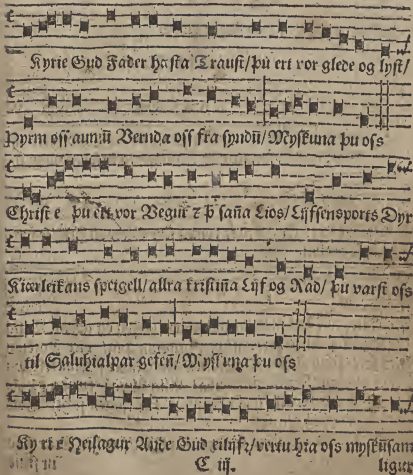 Kyrie Gud Fader hęsta Traust/ þu ert vor glede og lyst/
Þyrm oss aumū Vernda oss fra syndū/ Myskuna þu oss
Christe þu ert vor Vegur ⁊ Þ sańa Lios/ Lijfsensports Dyr
Kiærleikans speigell/ allra kristińa Lijf og Rad/ þu varst oss
til Saluhialpar gefeń/ Myskuna þu oss
Kyrie Heilagur Ande Gud eilijfꝛ/ vertu hia oss myskūsam
C iij. ligur